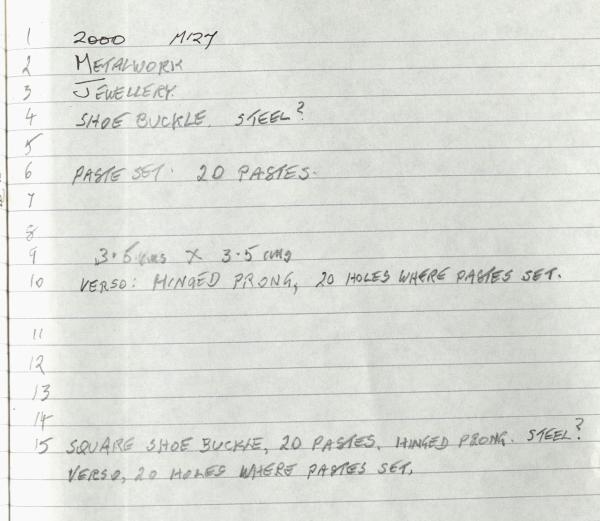 1 2000 M127
2 METALWORK
3 JEWELLERY.
4 SHOE BUCKLE. STEEL?
5
6 PASTE SET. 20 PASTES.
7
8
9 3.5 cms X 3.5 cms
10 VERSO: HINGED PRONG, 20 HOLES WHERE PASTES SET.
11
12
13
14
15 SQUARE SHOE BUCKLE, 20 PASTES. HINGED PRONG. STEEL?
VERSO, 20 HOLES WHERE PASTES SET.